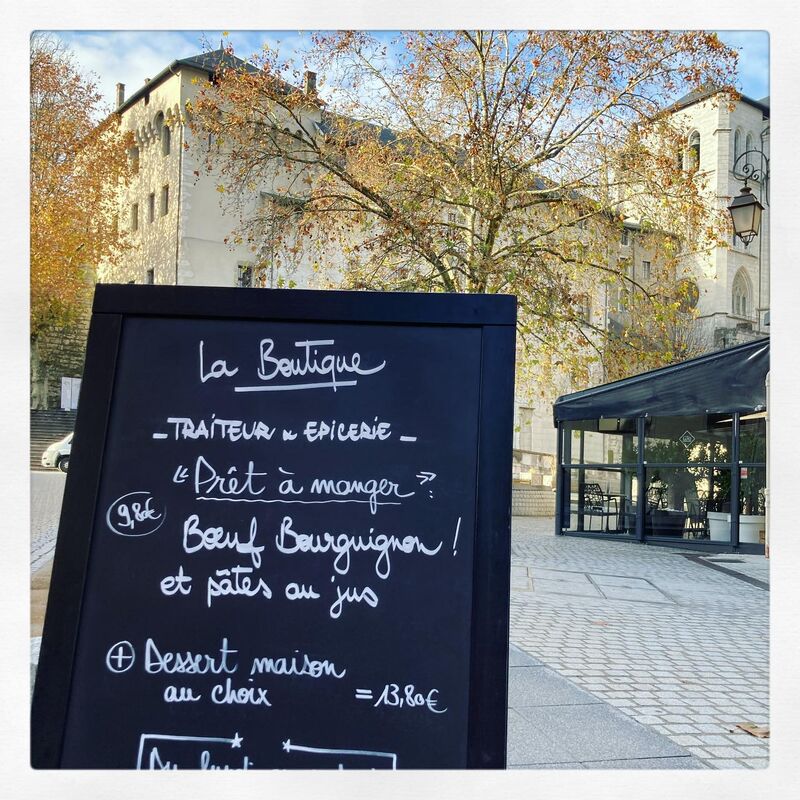 La Boutique
-TRAITEUR & EPICERIE-
"Prêt à manger":
9,80€
Bœuf Bourguignon !
et pâtes au jus
+ Dessert maison
au choix = 13,80€